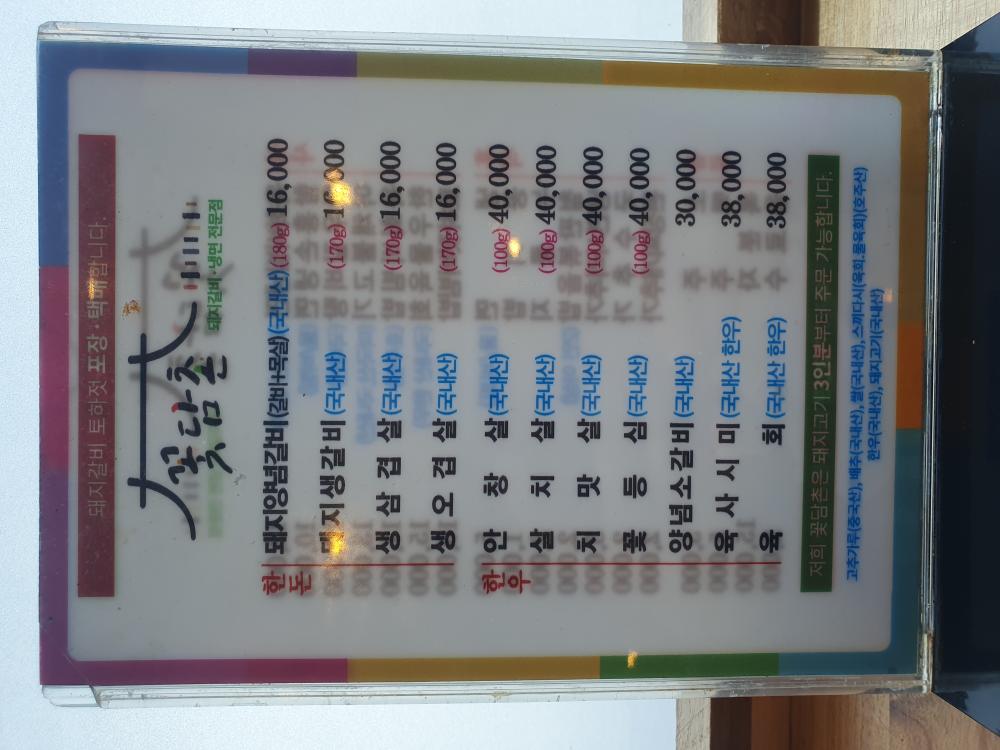 돼지갈비 토하젓 포장·택배합니다.
꽃담촌
돼지갈비·냉면 전문점
한돈
돼지양념갈비(갈비+목살)(국내산)(180g) 16,000
돼지생갈비 (국내산) (170g) 16,000
생삼겹살 (국내산) (170g) 16,000
생오겹살 (국내산) (170g) 16,000
한우
안창살 (국내산) (100g) 40,000
살치살 (국내산) (100g) 40,000
치맛살 (국내산) (100g) 40,000
꽃등심 (국내산) (100g) 40,000
양념소갈비 (국내산) 30,000
육사시미 (국내산 한우) 38,000
육회 (국내산 한우) 38,000
저희 꽃담촌은 돼지고기 3인분부터 주문 가능합니다.
고추가루(중국산), 배추(국내산), 쌀(국내산), 스끼다시(육회,물육회)(호주산)
한우(국내산), 돼지고기(국내산)